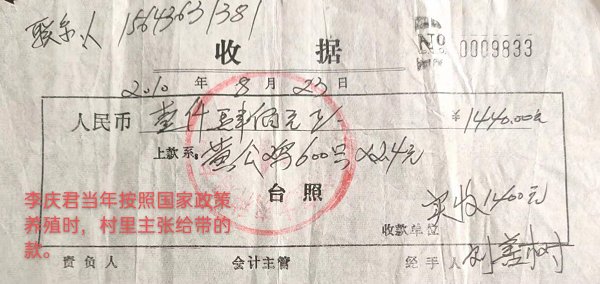 联系人 15643631381
收 据
No 0009833
2010 年 8 月 23 日
人民币 壹仟肆佰元正 ¥1440.00元
上款系 黄公鸡600号×2.4元
台 照
实收1400元
收款单位
李庆君当年按照国家政策
养殖时，村里主张给带的
款。
责负人 会计主管 经手人 刘